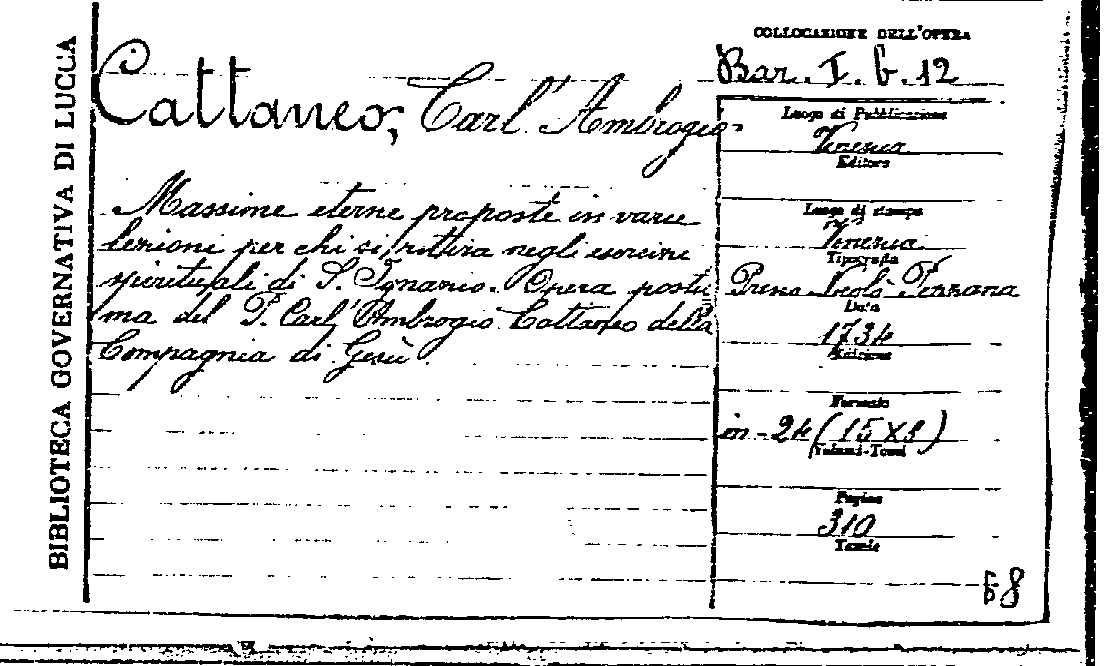 BIBLIOTECA GOVERNATIVA DI LUCCA
COLLOCAZIONE DELL'OPERA
Bar. I. b. 12
Cattaneo, Carl'Ambrogio.
Massime eterne proposte in varie
lezioni per chi si ritira negli esercizi
spirituali di S. Ignazio. Opera postu
ma del P. Carl'Ambrogio Cattaneo della
Compagnia di Gesù
Luogo di Pubblicazione
Venezia
Editore
Luogo di stampa
Venezia
Tipografia
Presso Nicolò Pezzana
Data
1734
Edizione
Formato
in-24 (15 x 8)
Volumi-Tomi
Pagine
310
Tavole